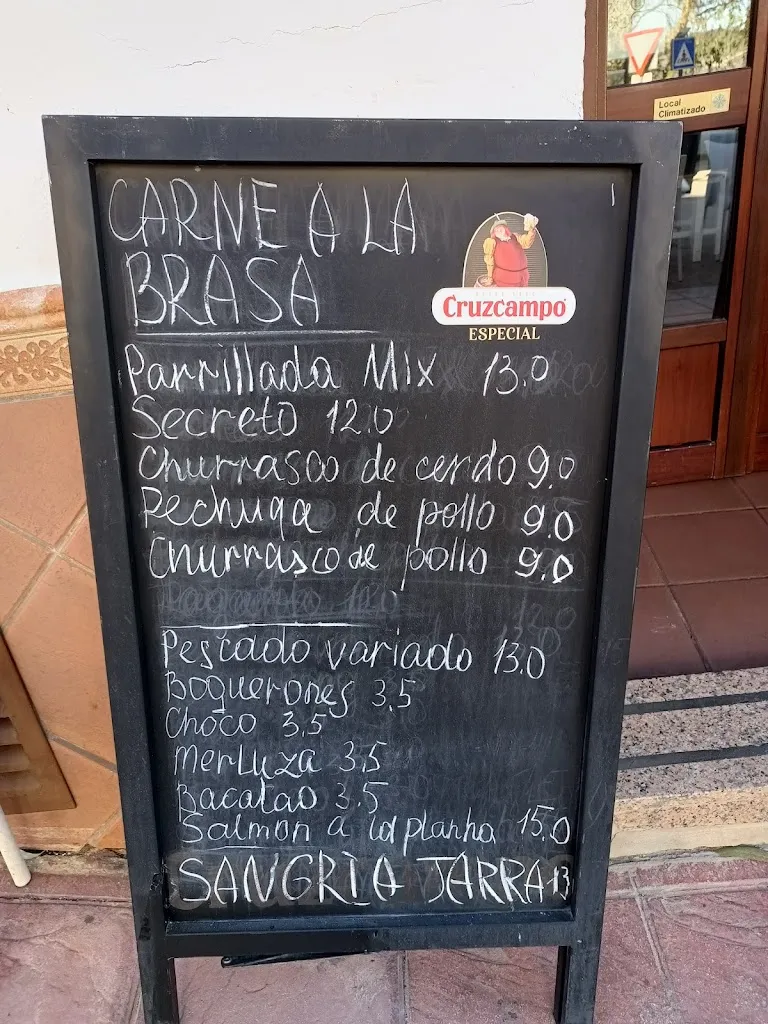 Local
Climatizado
CARNE A LA
BRASA
Cruzcampo
ESPECIAL
Parrillada Mix 13.0
Secreto 12.0
Churrasco de cerdo 9.0
Pechuga de pollo 9.0
Churrasco de pollo 9.0
12.0
Pescado variado 13.0
Boquerones 3.5
Choco 3.5
Merluza 3.5
Bacalao 3.5
Salmon a la planha 15.0
SANGRÌA JARRA 13